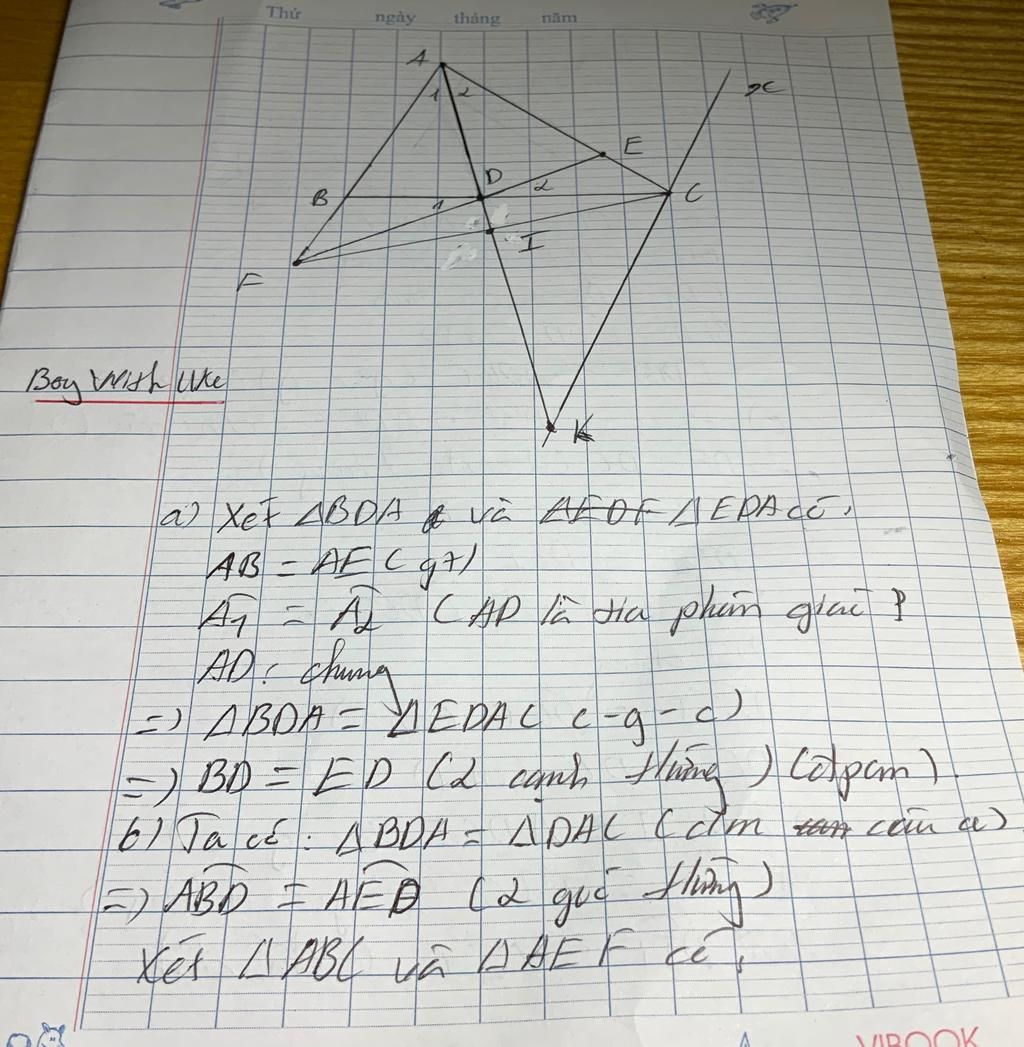 Thứ ngày tháng năm
A
1 2
x
E
D
B 1 2 C
I
F
Boy With Uke
K
a) Xét ΔBDA và ΔEDF ΔEDA có:
AB = AE (gt)
A1 = A2 (AD là tia phân giác)
AD: chung
=) ΔBDA = ΔEDA ( c-g-c)
=) BD = ED (2 cạnh t/ứng) (đpcm).
b) Ta có: ΔBDA = ΔDAC (cm câu a)
=) ABD = AED (2 góc t/ứng)
Xét ΔABC và ΔAEF có:
VIBOOK